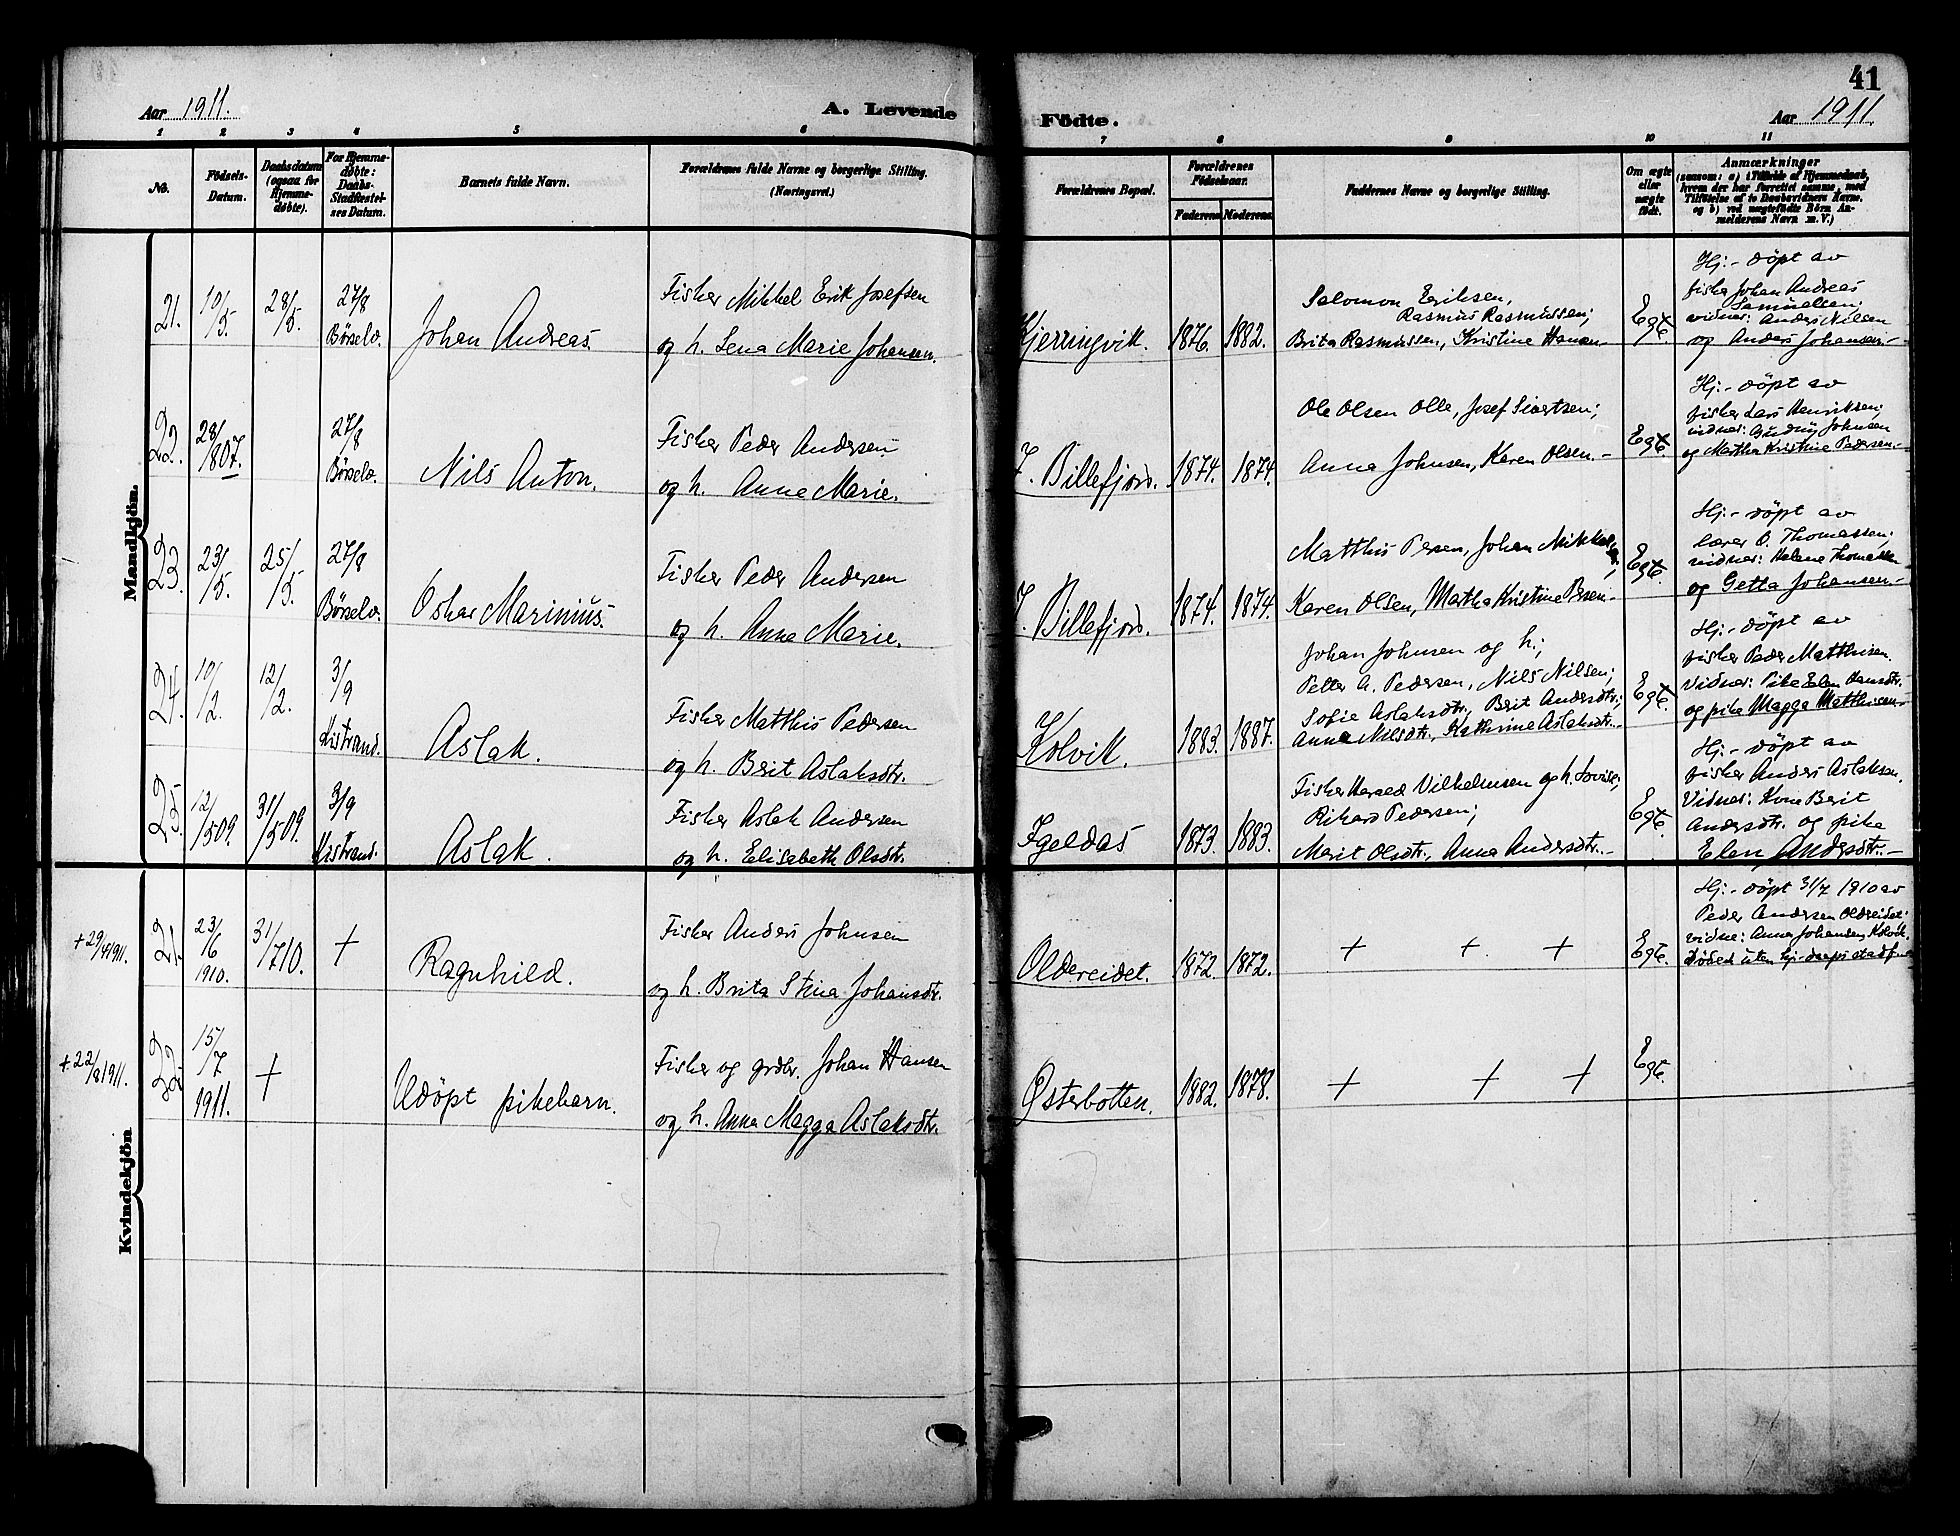 41
Aar 1911. A. Levende Födte. Aar 1911.
1 2 3 4 5 6 7 8 9 10 11
No. Födsels-Datum. Daabsdatum (ogsaa for Hjemme-döbte). For Hjemme-döbte: Daabs-Stadfæstel-ses Datum. Barnets fulde Navn. Forældrenes fulde Navne og borgerlige Stilling. (Næringsvei.) Forældrenes Bopæl. Forældrenes Födselsaar. Faderens Moderens Faddernes Navne og borgerlige Stilling. Om ægte eller uægte födt. Anmærkninger
(saasom: a) i Tilfælde af Hjemmedaab,
hvem der har forrettet samme, med
Tilföielse af to Daabsvidners Navne,
og b) ved uægtefödte Börn An-
melderens Navn m. V.)
Mandkjön.
21. 10/5. 28/5. 27/8 Börselv. Johan Andreas.
Fisker Mikkel Erik Josefsen
og h. Lena Marie Johansen.
Kjerringvik. 1876. 1882.
Salomon Eriksen,
Rasmus Rasmussen;
Brita Rasmussen, Kristine Hansen-
Egte.
Hj:- döpt av
fisker Johan Andreas
Samuelsen;
vidner: Anders Nilsen
og Anders Johansen.-
22. 28/807. 27/8 Börselv. Nils Anton.
Fisker Peder Andersen
og h. Anne Marie.
I. Billefjord. 1874. 1874.
Ole Olsen Olle, Josef Sivertsen;
Anna Johnsen, Karen Olsen.-
Egte.
Hj:- döpt av
fisker Lars Henriksen;
vidner: Johnsen
og Martha Kristine Pedersen-
23. 23/5. 25/5. 27/8 Börselv. Oskar Marinius.
Fisker Peder Andersen
og h. Anne Marie.
I. Billefjord. 1874. 1874.
Matthis Persen, Johan Mikkelsen,
Karen Olsen, Martha Kristine Persen-
Egte.
Hj:- döpt av
lærer O. Thomassen;
vidner: Helene Thomassen
og Getta Johansen.-
24. 10/2. 12/2. 3/9 Kistrand. Aslak.
Fisker Matthis Pedersen
og h. Brit Aslaksdtr.
Kolvik. 1883. 1887.
Johan Johnsen og h;
Petter A. Pedersen, Nils Nilsen;
Sofie Aslaksdtr, Brit Andersdtr;
Anna Nilsdtr., Kathrine Aslaksdtr.-
Egte.
Hj:- döpt av
fisker Peder Matthisen.
Vidner: Pike Elen Hansdtr.
og pike Magga Matthisen-
25. 12/509. 31/509. 3/9 Kistrand. Aslak.
Fisker Aslak Andersen
og h. Elisabeth Olsdtr.
Igeldas 1873. 1883.
Fisker Harald Vilhelmsen og h. Lovise;
Rikard Pedersen;
Marit Olsdtr., Anna Andersdtr.-
Egte.
Hj:- döpt av
fisker Anders Aslaksen.
Vidner: Kone Berit
Andersdtr. og pike
Elen Andersdtr.-
Kvindekjön
21. 23/6 1910. 31/710. + Ragnhild.
Fisker Anders Johnsen
og h. Brita Stina Johansdtr.
Oldereidet. 1872. 1872.
+ + +
Egte.
Hj:- döpt 31/7 1910 av
Peder Andersen Oldereidet;
vidne: Anna Johansen, Kolvik.
Döde uten hj-daaps stadf.
22. + 22/8 1911. 15/7 1911. + Udöpt pikebarn.
Fisker og grdbr. Johan Hansen
og h. Anna Magga Aslaksdtr.
Østerbotten. 1882. 1878.
+ + +
Egte.